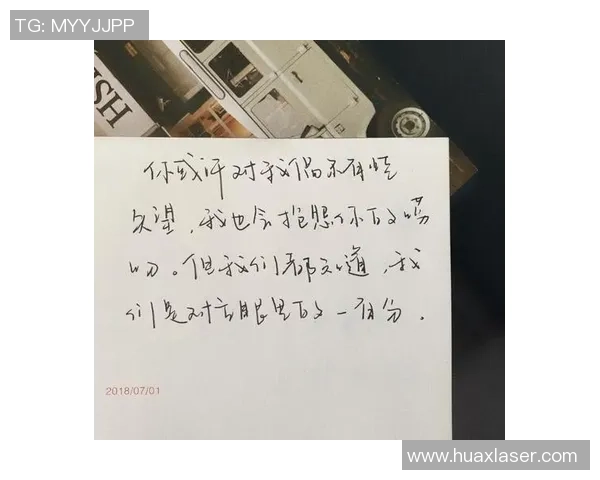 TG: MYYJJPP
ISH
你或许对我偶尔有些
失望，我也会抱怨你的唠
叨。但我们都知道，我
们是对方眼里的一百分。
2018/07/01
www.huaxlaser.com